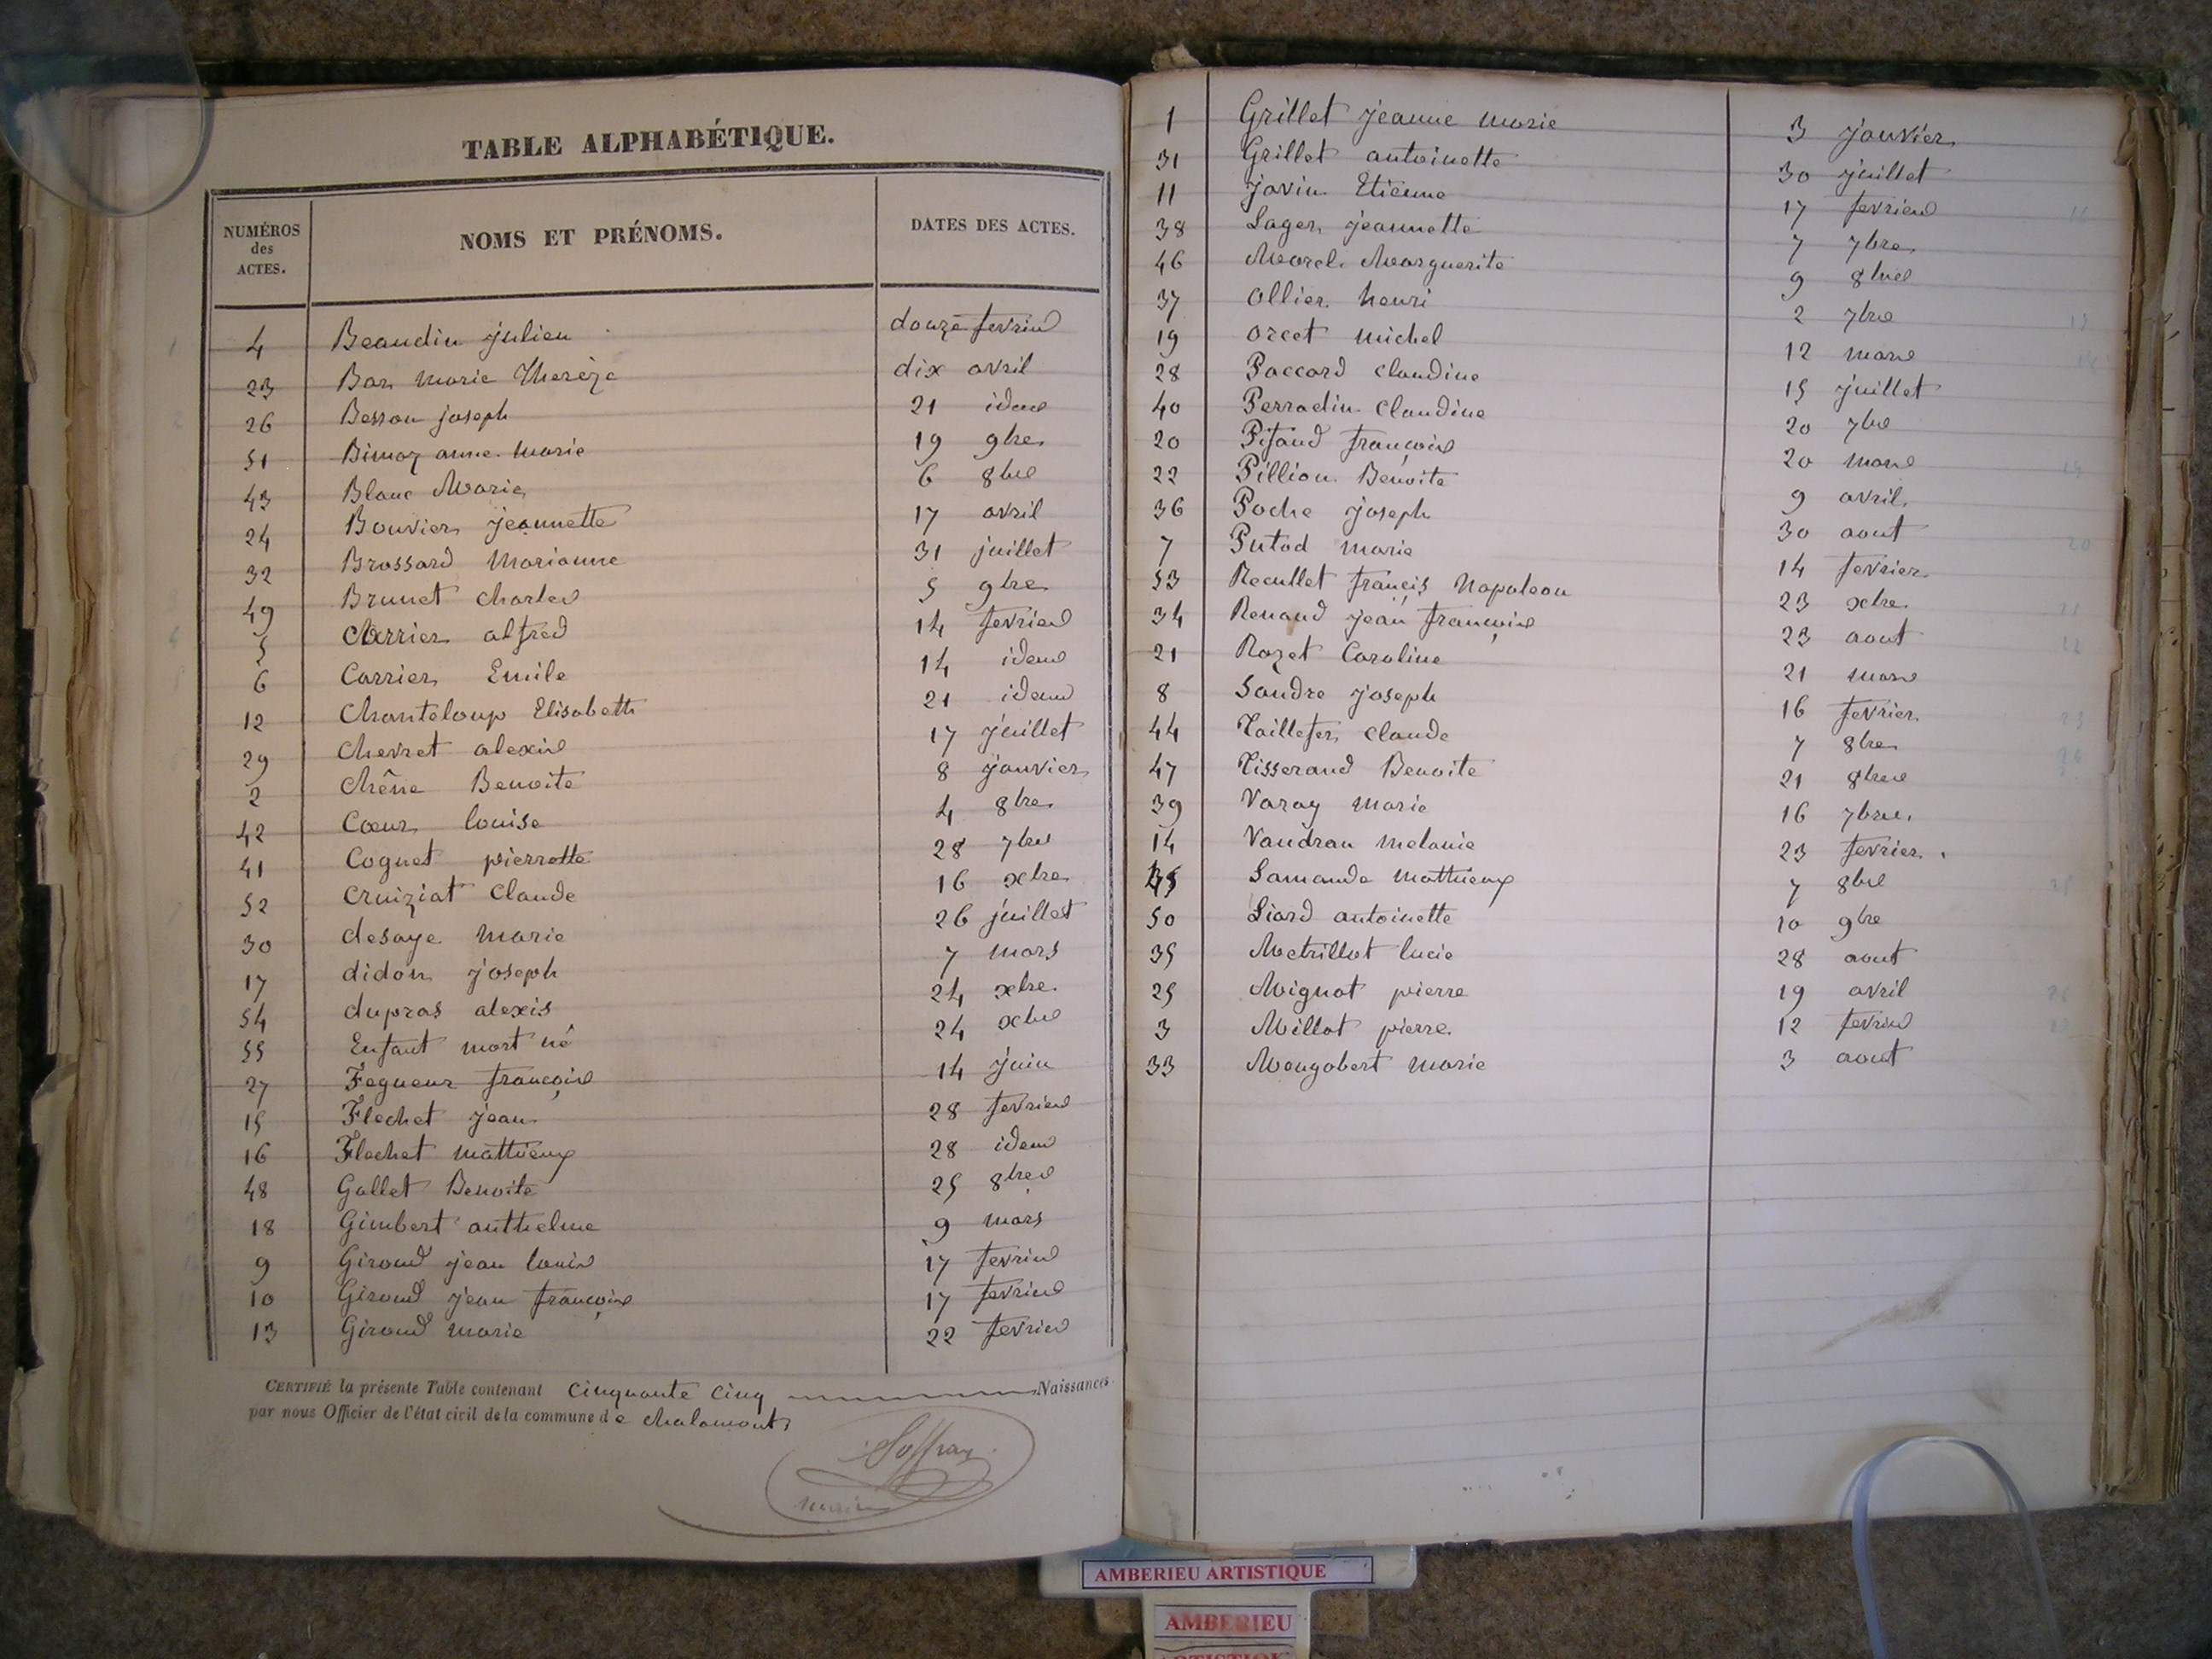 TABLE ALPHABÉTIQUE.
NUMÉROS des ACTES. NOMS ET PRÉNOMS. DATES DES ACTES.
4 Beaudin julien douze fevrier
23 Bar marie Thereze dix avril
26 Besson joseph 21 idem
51 Bimoz anne marie 19 9bre
43 Blanc Marie 6 8bre
24 Bouvier jeannette 17 avril
32 Brossard Marianne 31 juillet
49 Brunet charles 5 9bre
5 Carrier alfred 14 fevrier
6 Carrier Emile 14 idem
12 Chanteloup Elisabeth 21 idem
29 Chevret alexis 17 juillet
2 Chêne Benoite 8 janvier
42 Coeur louise 4 8bre
41 Coquet pierrette 28 7bre
52 Cruiziat Claude 16 xbre
30 desaye Marie 26 juillet
17 didon joseph 7 mars
54 dupras alexis 24 xbre
55 Enfant mort né 24 xbre
27 Fegueur françois 14 juin
15 Flechet jean 28 fevrier
16 Flechet mathieux 28 idem
48 Gallet Benoite 25 8bre
18 Gimbert anthelme 9 mars
9 Giroud jean louis 17 fevrier
10 Giroud jean françois 17 fevrier
13 Giroud marie 22 fevrier
CERTIFIÉ la présente Table contenant cinquante cinq Naissances
par nous Officier de l'état civil de la commune de chalamont
maire
1 Grillet jeanne marie 3 janvier
31 Grillet antoinette 30 juillet
11 javin Etienne 17 fevrier
38 Lager jeannette 7 7bre
46 Morel Marguerite 9 8bre
37 ollier henri 2 7bre
19 orcet michel 12 mars
28 Paccard claudine 15 juillet
40 Perradin claudine 20 7bre
20 Pifaud françois 20 mars
22 Pillion Benoite 9 avril
36 Poche joseph 30 aout
7 Putod marie 14 fevrier
53 Recullet francis Napoleon 23 xbre
34 Renaud jean françois 23 aout
21 Rozet Caroline 21 mars
8 Sandre joseph 16 fevrier
44 Taillefer claude 7 8bre
47 Tisserand Benoite 21 8bre
39 Varay marie 16 7bre
14 Vaudran melanie 23 fevrier
45 Lamande mathieux 7 8bre
50 Liard antoinette 10 9bre
35 Metrillot lucie 28 aout
25 Mignot pierre 19 avril
3 Millot pierre 12 fevrier
33 Mongobert marie 3 aout
AMBERIEU ARTISTIQUE
AMBERIEU